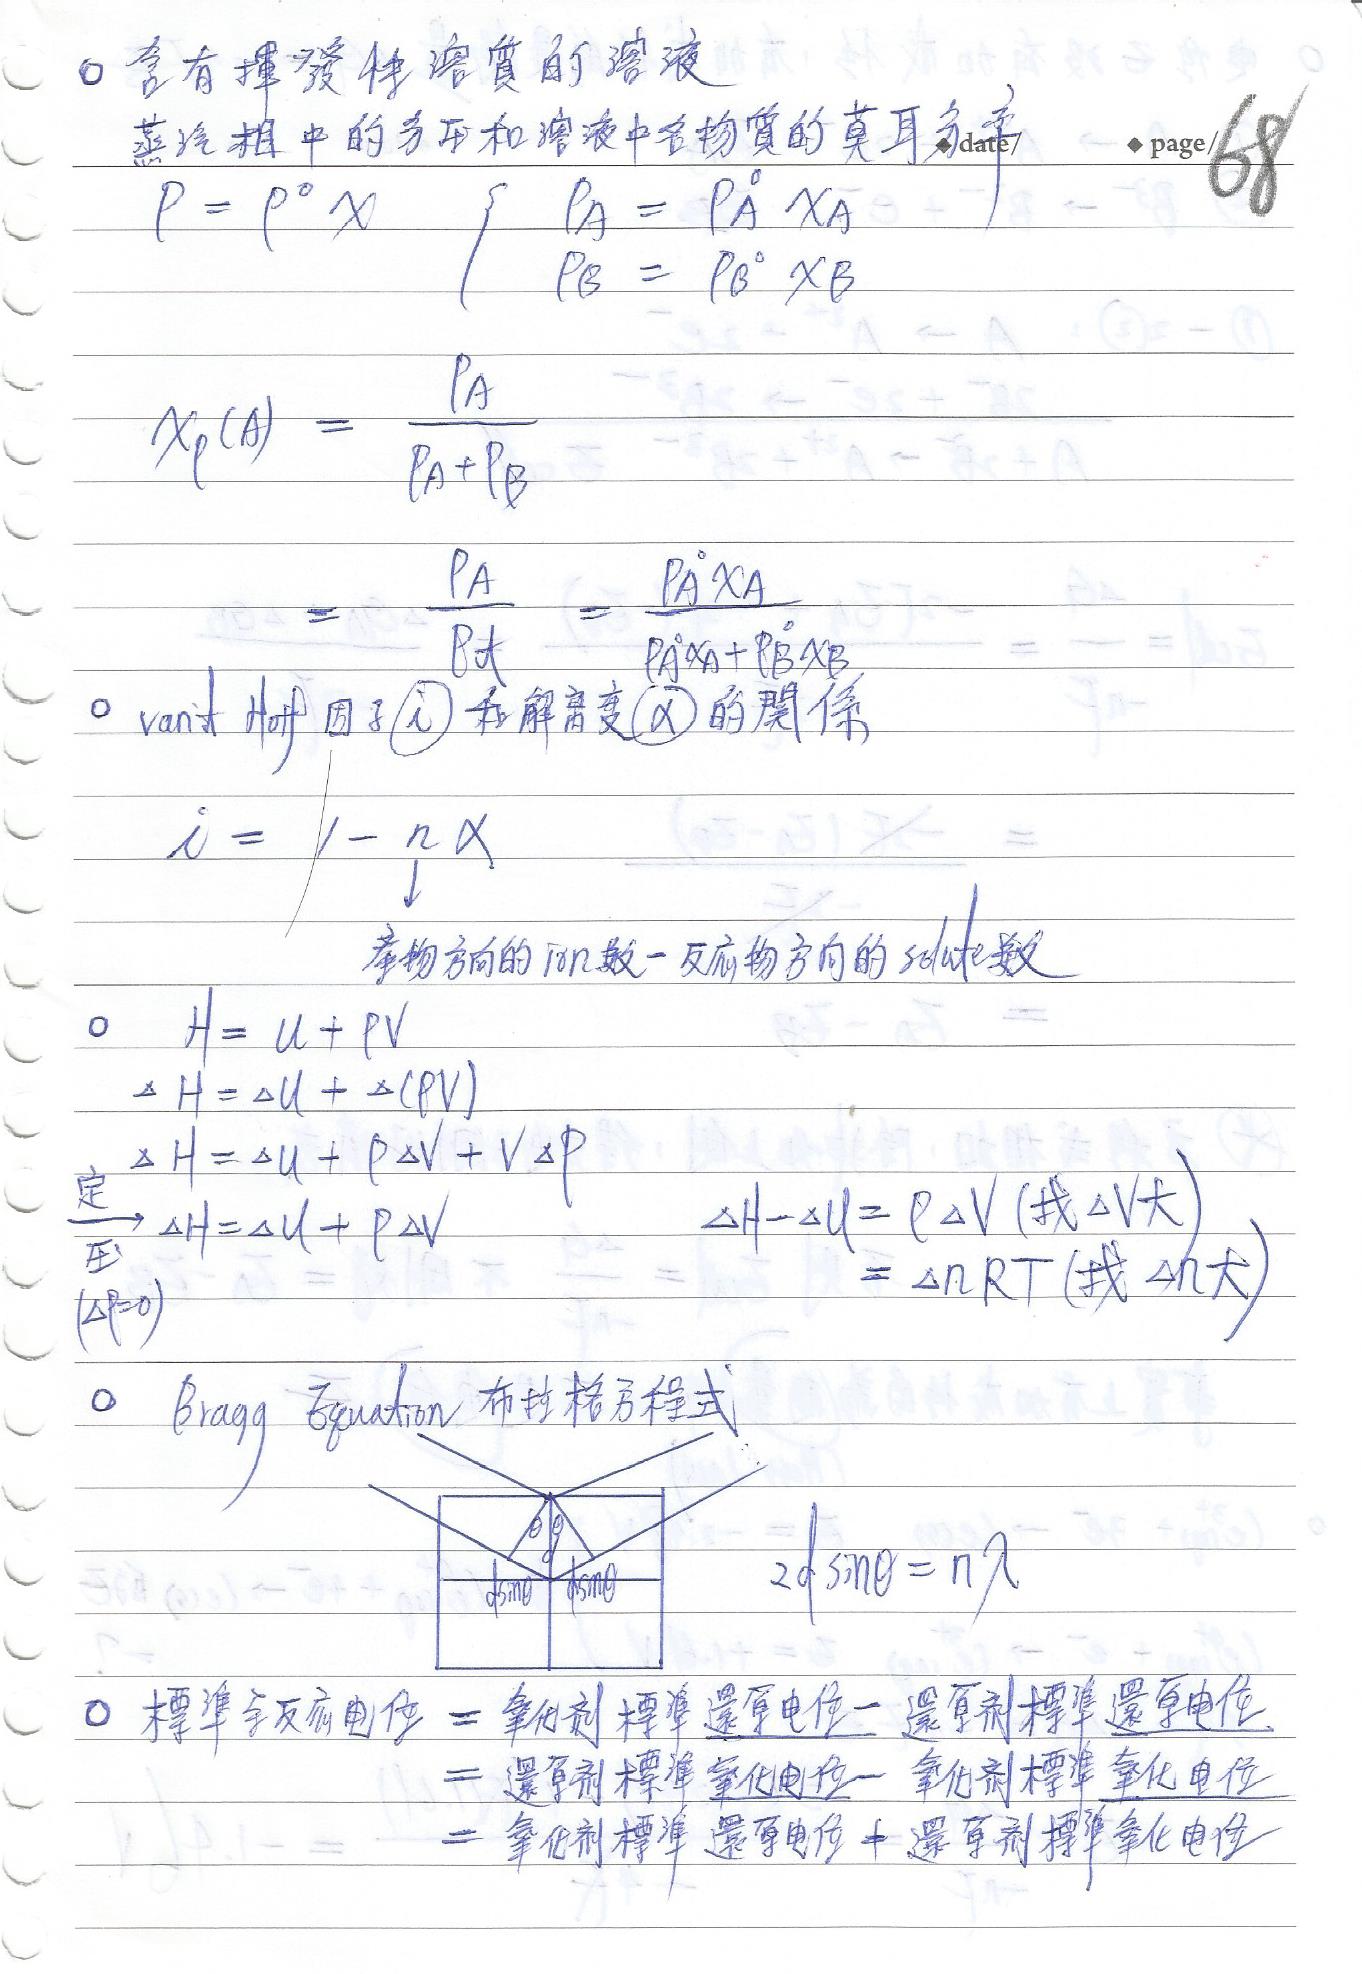 ○ 含有揮發性溶質的溶液
蒸汽相中的分压和溶液中各物質的莫耳分率
◆ date/ ◆ page/ 68
P = P° X { PA = PA° XA
PB = PB° XB
Xp(A) = PA / (PA + PB)
= PA / Pt = PA° XA / (PA° XA + PB° XB)
○ van't Hoff 因子 i 和解離度 α 的關係
i = 1 - n α
↓
產物方向的 ion 數 - 反應物方向的 solute 數
○ H = U + PV
△H = △U + △(PV)
△H = △U + P△V + V△P
定压 (△P=0) → △H = △U + P△V
△H - △U = P△V (找△V大)
= △nRT (找△n大)
○ Bragg Equation 布拉格方程式
θ θ
d
dsinθ dsinθ
2d sinθ = nλ
○ 標準全反應电位 = 氧化剂標準還原电位 - 還原剂標準還原电位
= 還原剂標準氧化电位 - 氧化剂標準氧化电位
= 氧化剂標準還原电位 + 還原剂標準氧化电位